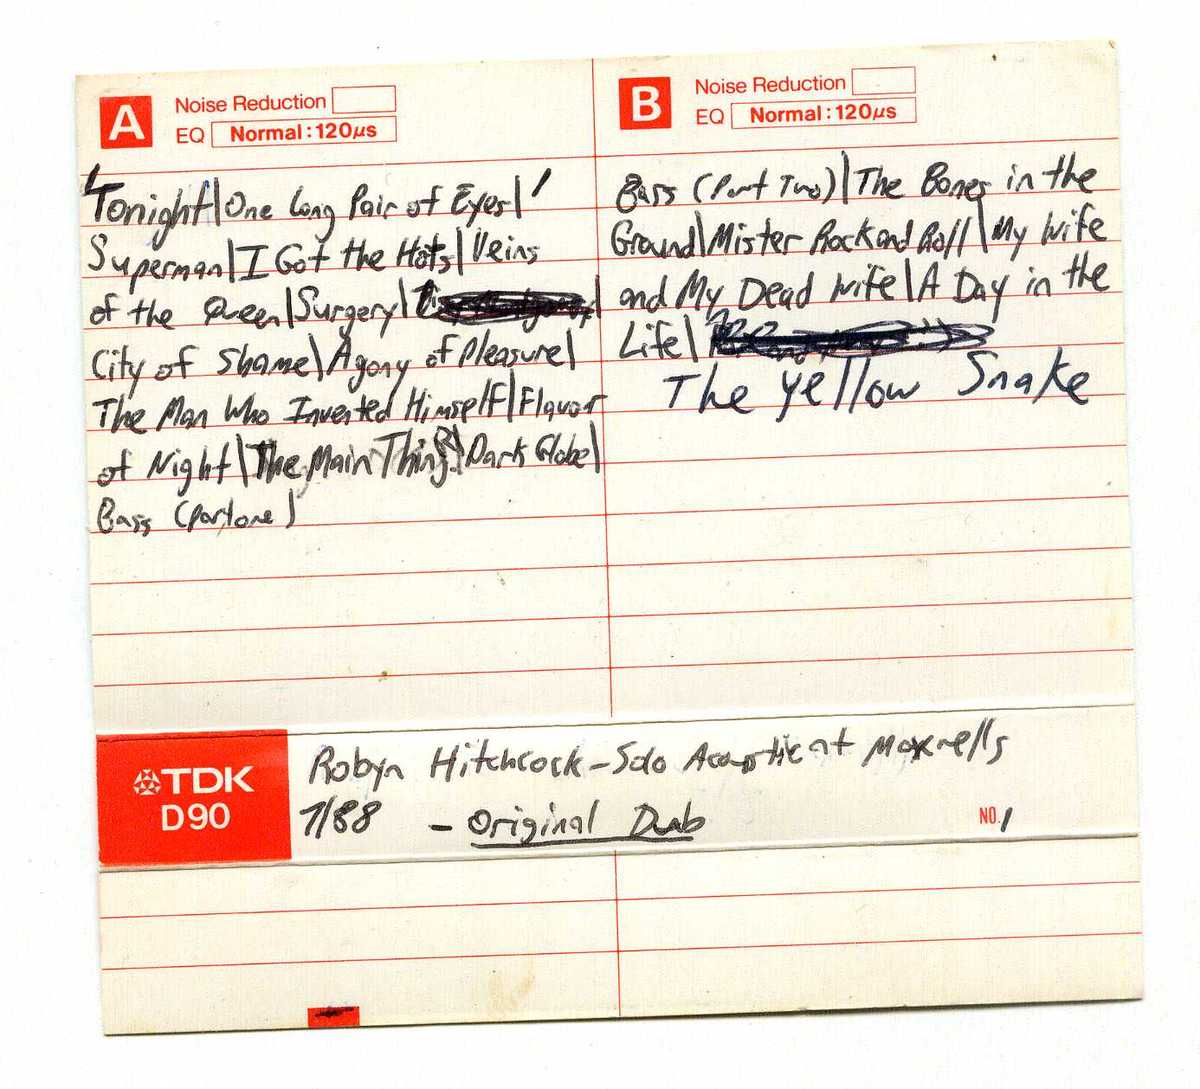 A Noise Reduction
EQ Normal:120μs
'Tonight|One Long Pair of Eyes|'
Superman|I Got the Hots|Veins
of the Queen|Surgery|
City of Shame|Agony of Pleasure|
The Man Who Invented Himself|Flavor
of Night|The Main Thing|Dark Globe|
Bass (Part One)
B Noise Reduction
EQ Normal:120μs
Bass (Part Two)|The Bones in the
Ground|Mister Rock and Roll|My Wife
and My Dead Wife|A Day in the
Life|
The Yellow Snake
TDK
D90
Robyn Hitchcock - Solo Acoustic at Maxwells
7/88 - Original Dub
NO. 1